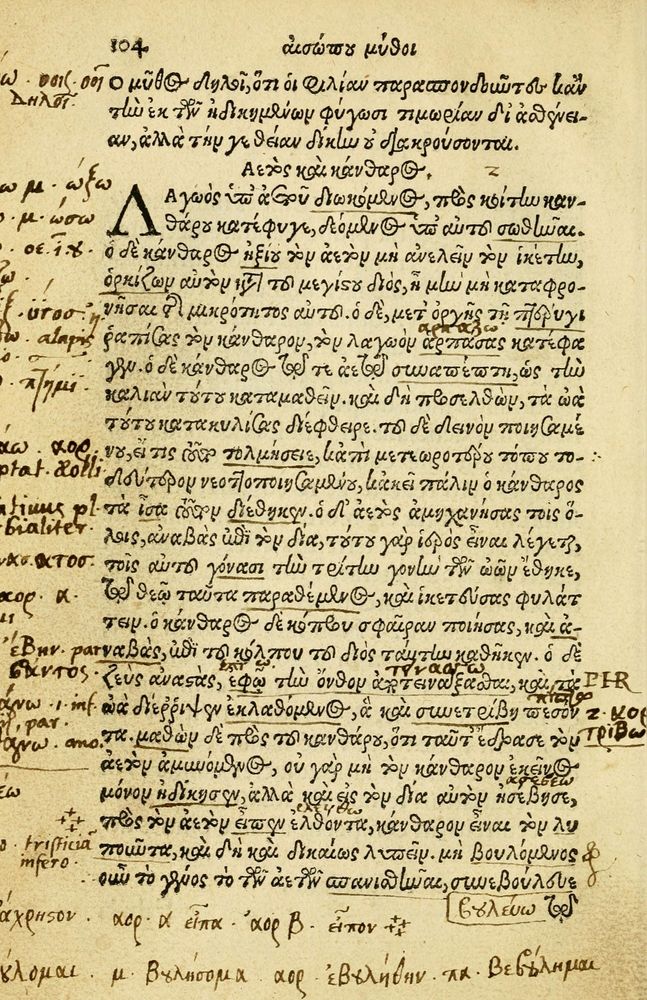 104 αἰσώπου μῦθοι
Ο μῦθος δηλοῖ, ὅτι οἱ φιλίαν παρασπονδοῦντες κἂν
τὴν ἐκ τῶν ἠδικημένων φύγωσι τιμωρίαν δι' ἀσθένει-
αν, ἀλλὰ τήν γε θείαν δίκην οὐ διακρούσονται.
Αετὸς καὶ κάνθαρος. 2
ΛΑγωὸς ὑπ' ἀετοῦ διωκόμενος, πρὸς κοίτην καν-
θάρου κατέφυγε, δεόμενος ὑπ' αὐτοῦ σωθῆναι.
ὁ δὲ κάνθαρος ἠξίου τὸν ἀετὸν μὴ ἀνελεῖν τὸν ἱκέτην,
ὁρκίζων αὐτὸν κατὰ τοῦ μεγίστου διὸς, ἦ μὴν μὴ καταφρο-
νῆσαι τῆς μικρότητος αὐτοῦ. ὁ δὲ, μετ' ὀργῆς τῇ πτέρυγι
ῥαπίσας τὸν κάνθαρον, τὸν λαγωὸν ἁρπάσας κατέφα
γεν. ὁ δὲ κάνθαρος τῷ τε ἀετῷ συναπέπτη, ὡς τὴν
καλιὰν τούτου καταμαθεῖν. καὶ δὴ προσελθὼν, τὰ ὠὰ
τούτου κατακυλίσας διέφθειρε. τοῦ δὲ δεινὸν ποιησαμέ
νου, εἴ τις τοῦτο τολμήσειε, κἀπὶ μετεωροτέρου τόπου το-
δεύτερον νεοττοποιησαμένου, κἀκεῖ πάλιν ὁ κάνθαρος
τὰ ἶσα τοῦτον διέθηκεν. ὁ δ' ἀετὸς ἀμηχανήσας τοῖς ὅ-
λοις, ἀναβὰς ἐπὶ τὸν δία, τούτου γὰρ ἱερὸς εἶναι λέγεται,
τοῖς αὐτοῦ γόνασι τὴν τρίτην γονὴν τῶν ὠῶν ἔθηκε,
τῷ θεῷ ταῦτα παραθέμενος, καὶ ἱκετεύσας φυλάτ
τειν. ὁ κάνθαρος δὲ κόπρου σφαῖραν ποιήσας, καὶ ἀ-
ναβὰς, ἐπὶ τοῦ κόλπου τοῦ διὸς ταύτην καθῆκεν. ὁ δὲ
ζεὺς ἀναστὰς, ἐφ' ᾧ τὴν ὄνθον ἀποτεινάξασθαι, καὶ τὰ
ὠὰ διέρριψεν ἐκλαθόμενος, ἃ καὶ συνετρίβη πεσόν
τα. μαθὼν δὲ πρὸς τοῦ κανθάρου, ὅτι ταῦτ' ἔδρασε τὸν
ἀετὸν ἀμυνόμενος, οὐ γὰρ μὴ τὸν κάνθαρον ἐκεῖνος
μόνον ἠδίκησεν, ἀλλὰ καὶ εἰς τὸν δία αὐτὸν ἠσέβησε,
πρὸς τὸν ἀετὸν εἶπεν ἐλθόντα, κάνθαρον εἶναι τὸν λυ
ποῦντα, καὶ δὴ καὶ δικαίως λυπεῖν. μὴ βουλόμενος
οὖν τὸ γένος τὸ τῶν ἀετῶν σπανισθῆναι, συνεβούλευε
βουλεύω τῷ
ἀορ. α εἶπα. ἀορ β. εἶπον
μ. βουλήσομαι ἀορ. ἐβουλήθην. πα. βεβούλημαι